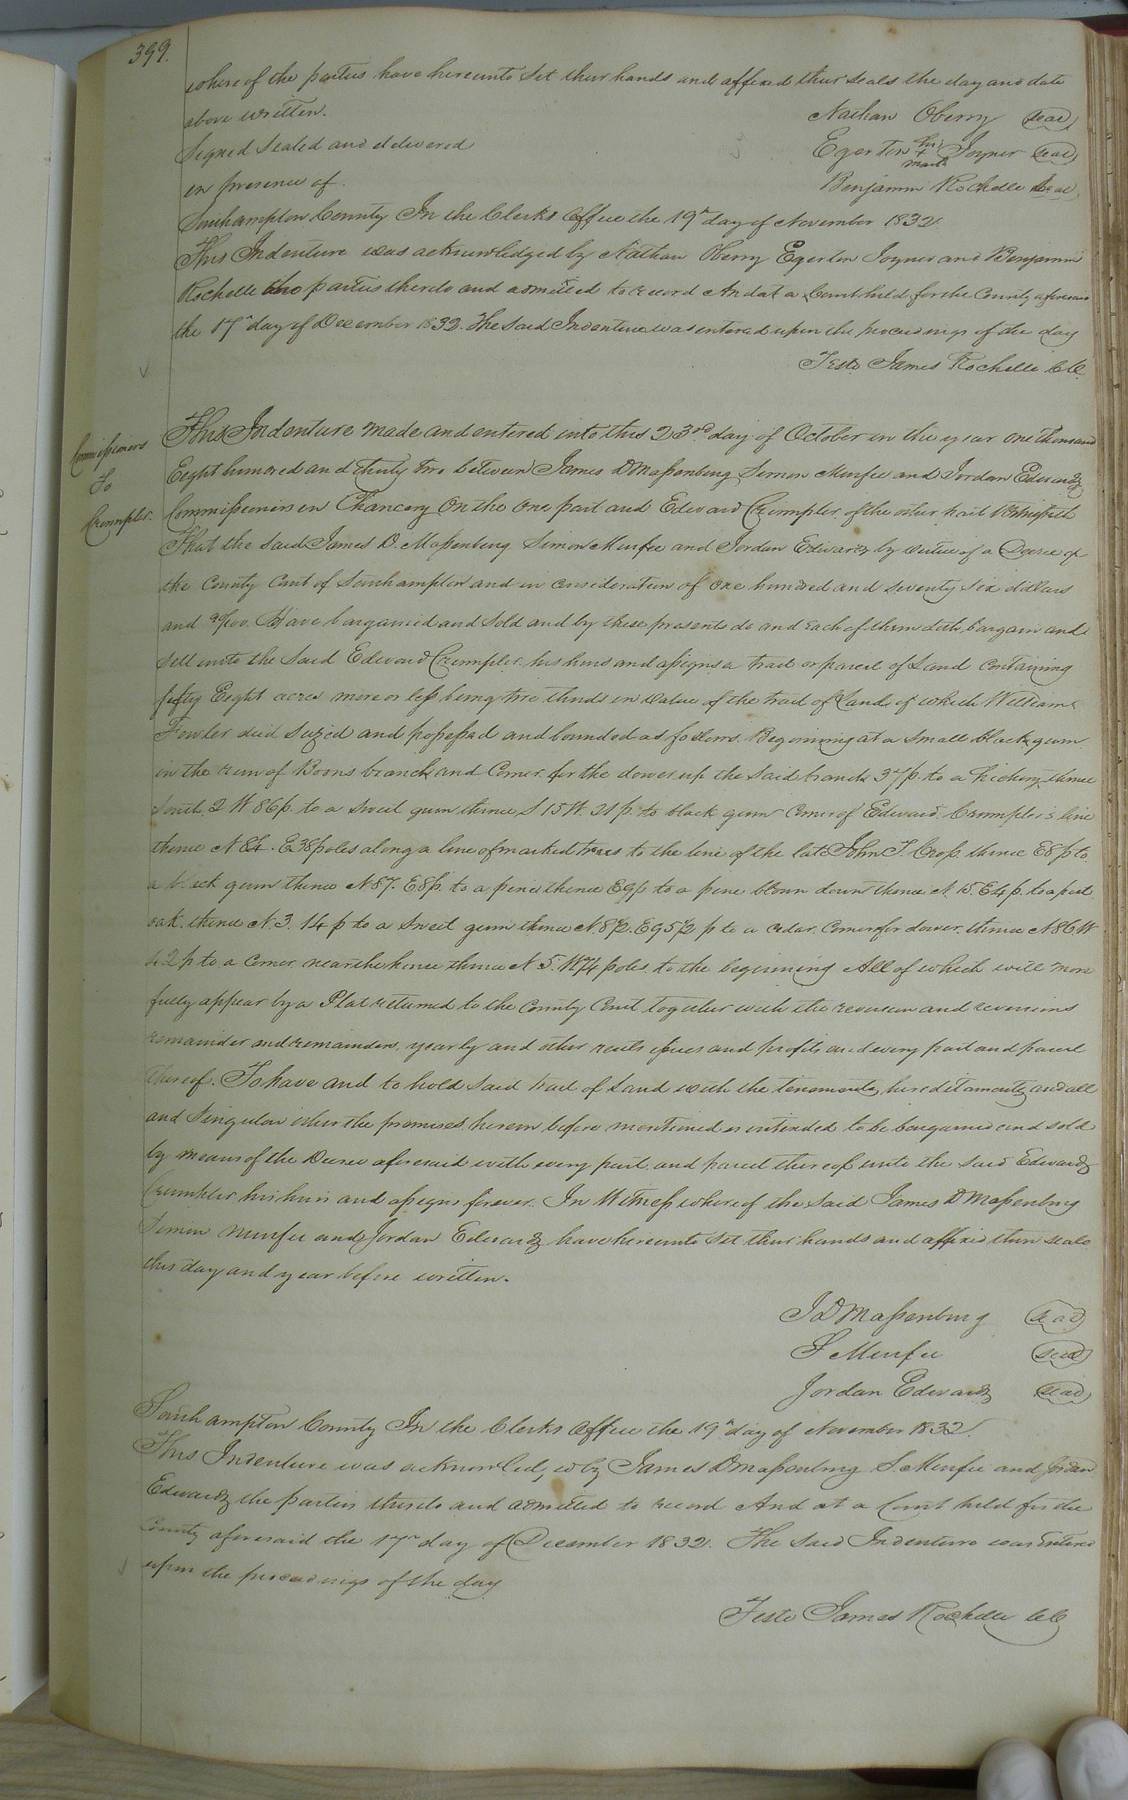 399.
whereof the parties have hereunto set their hands and affixed their seals the day and date
above written.
Nathan Oberry seal
Signed Sealed and delivered
Egerton his + mark Joyner seal
in presence of
Benjamin Rochelle seal
Southampton County In the Clerks Office the 19th day of November 1832.
This Indenture was acknowledged by Nathan Oberry Egerton Joyner and Benjamin
Rochelle the parties thereto and admitted to record And at a Court held for the County aforesaid
the 17th day of December 1832. The said Indenture was entered upon the proceedings of the day
Teste James Rochelle CC.
Commissioners
To
Crumpler.
This Indenture made and entered into this 23rd day of October in the year one thousand
Eight hundred and thirty two between James D Massenburg Simon Murfee and Jordan Edwards
Commissioners in Chancery On the one part and Edward Crumpler of the other part Witnesseth
That the said James D. Massenburg Simon Murfee and Jordan Edwards by virtue of a Decree of
the County Court of Southampton and in consideration of one hundred and seventy six dollars
and /100. Have bargained and sold and by these presents do and each of them doth bargain and
sell unto the said Edward Crumpler his heirs and assigns a tract or parcel of Land containing
fifty Eight acres more or less being two thirds in value of the tract of Land of which William
Fowler died seized and possessed and bounded as follows. Begining at a small black gum
in the run of Boons branch and Corner for the dower up the said branch 37p. to a hickory thence
South 2 W 86p. to a sweet gum thence S 15 W. 21p. to black gum Corner of Edward Crumpler's line
thence N 84. E 38 poles along a line of marked trees to the line of the late John T. Crop thence E8p to
a black gum thence N 87. E8p. to a pine thence E9p to a pine blown down thence N. 15. E4p. to a post
oak thence N. 3. 14 p to a sweet gum thence N. 8½. E9 5½ p to a cedar Corner for dower thence N 86 W
42 p to a Corner near the house thence N 5. W 74 poles to the beginning All of which will more
fully appear by a Plat returned to the County Court together with the reversion and reversions
remainder and remainders, yearly and other rents issues and profits and every part and parcel
thereof. To have and to hold said tract of Land with the tenements, hereditaments and all
and Singular other the premises herein before mentioned or intended to be bargained and sold
by means of the Decree aforesaid with every part and parcel thereof unto the said Edward
Crumpler his heirs and assigns forever. In Witness whereof the said James D Massenburg
Simon Murfee and Jordan Edwards have hereunto set their hands and affixed their seals
this day and year before written.
J D Massenburg seal
S Murfee seal
Jordan Edwards seal
Southampton County In the Clerks Office the 19th day of November 1832.
This Indenture was acknowledged by James D Massenburg S. Murfee and Jordan
Edwards the parties thereto and admitted to record And at a Court held for the
County aforesaid the 17th day of December 1832. The said Indenture was Entered
upon the proceedings of the day
Teste James Rochelle CC